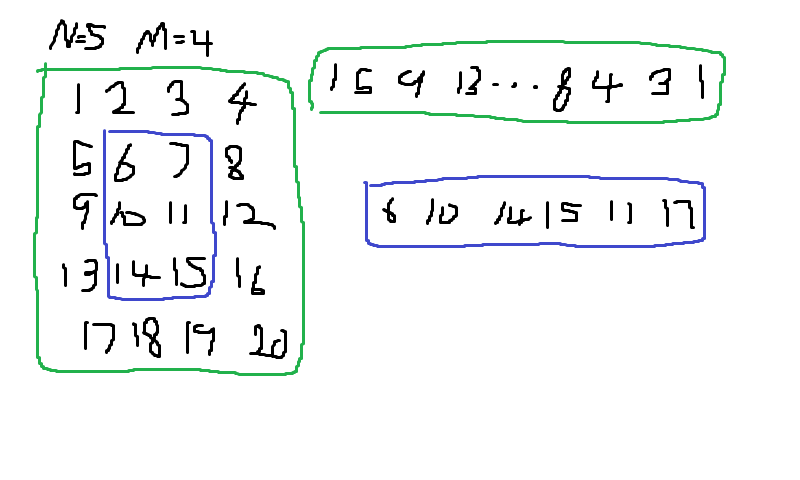 N=5 M=4
1 2 3 4
5 6 7 8
9 10 11 12
13 14 15 16
17 18 19 20
1 5 9 13 ... 8 4 3 1
6 10 14 15 11 17